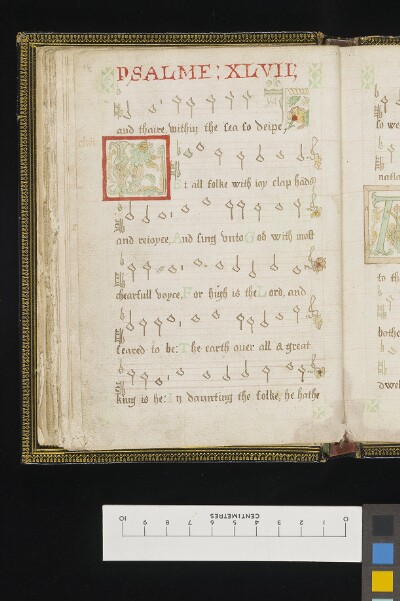 PSALME: XLVII;
and thaire within the sea so deipe,
Let all folke with ioy clap hads
and reioyce, And sing vnto God with most
chearfull voyce, For high is the Lord, and
feared to be: The earth ouer all & great
king is he: In daunting the folke, he hathe
so we
to th
bothe
dwel
10 9 8 7 6 5 4 3 2 1 0
CENTIMETRES